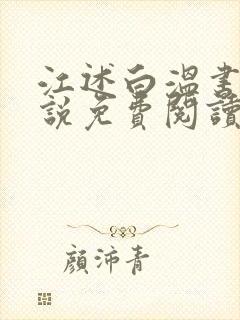 江述白溫書
說免費閱讀
顏沛青